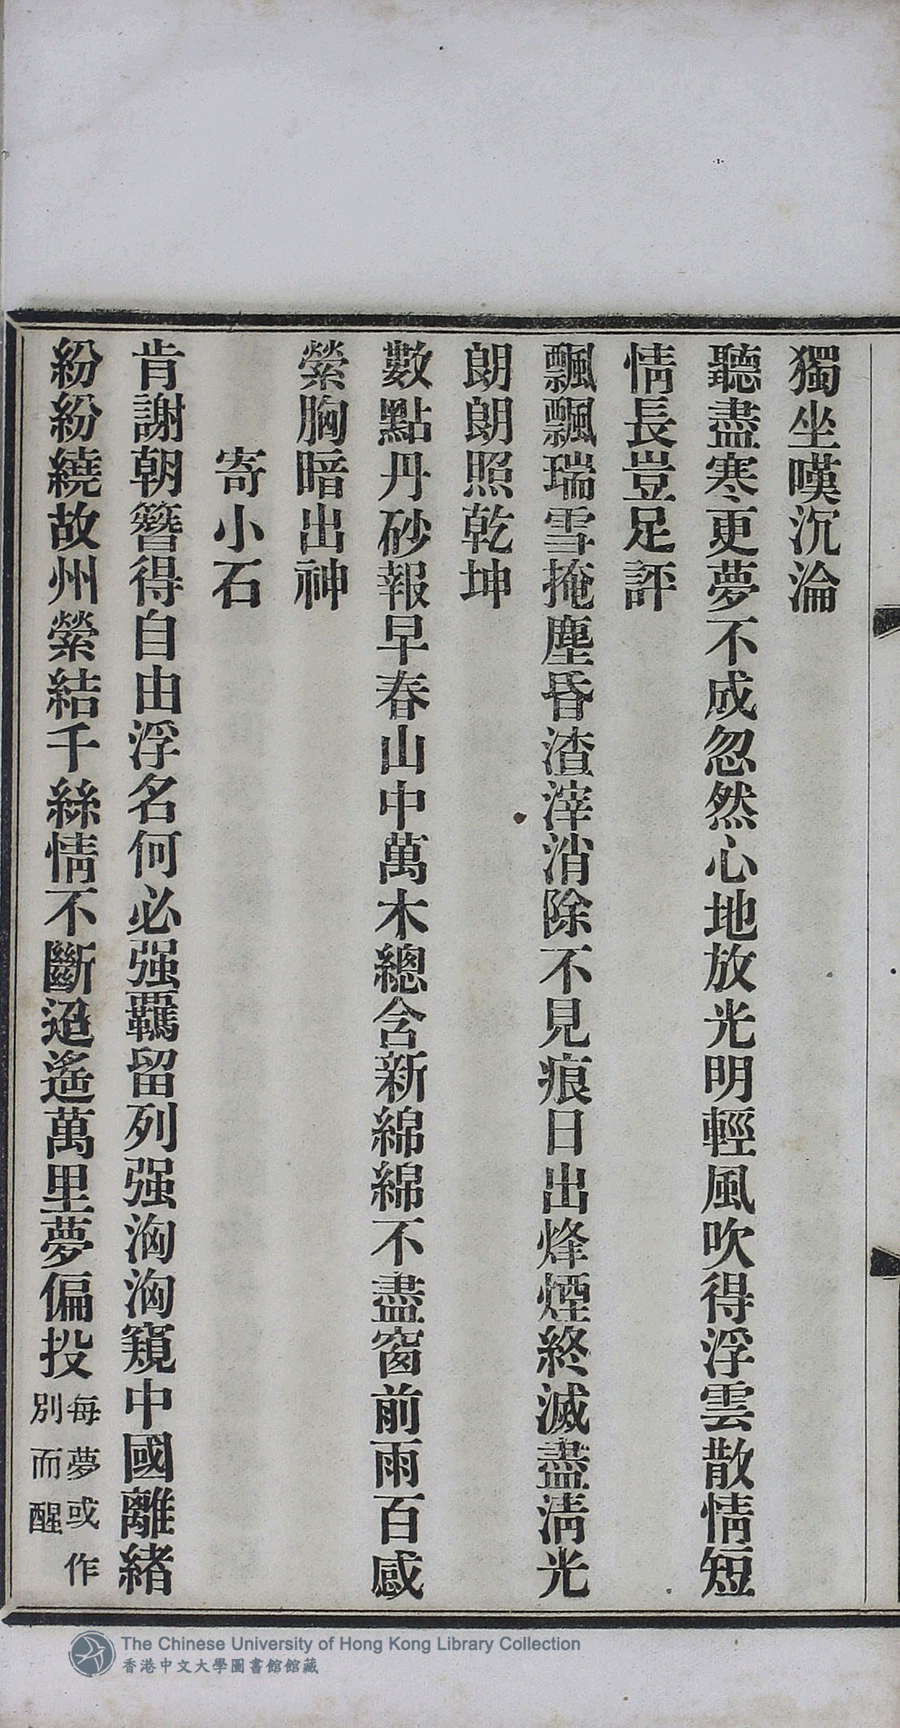 獨坐嘆沉淪
聽盡寒更夢不成忽然心地放光明輕風吹得浮雲散情短
情長豈足評
飄飄瑞雪掩塵昏渣滓消除不見痕日出烽煙終滅盡淸光
朗朗照乾坤
數點丹砂報早春山中萬木總含新綿綿不盡窗前雨百感
縈胸暗出神
寄小石
肯謝朝簪得自由浮名何必强羈留列强洶洶窺中國離緒
紛紛繞故州縈結千絲情不斷迢遙萬里夢偏投
每夢或作
別而醒
The Chinese University of Hong Kong Library Collection
香港中文大學圖書館館藏